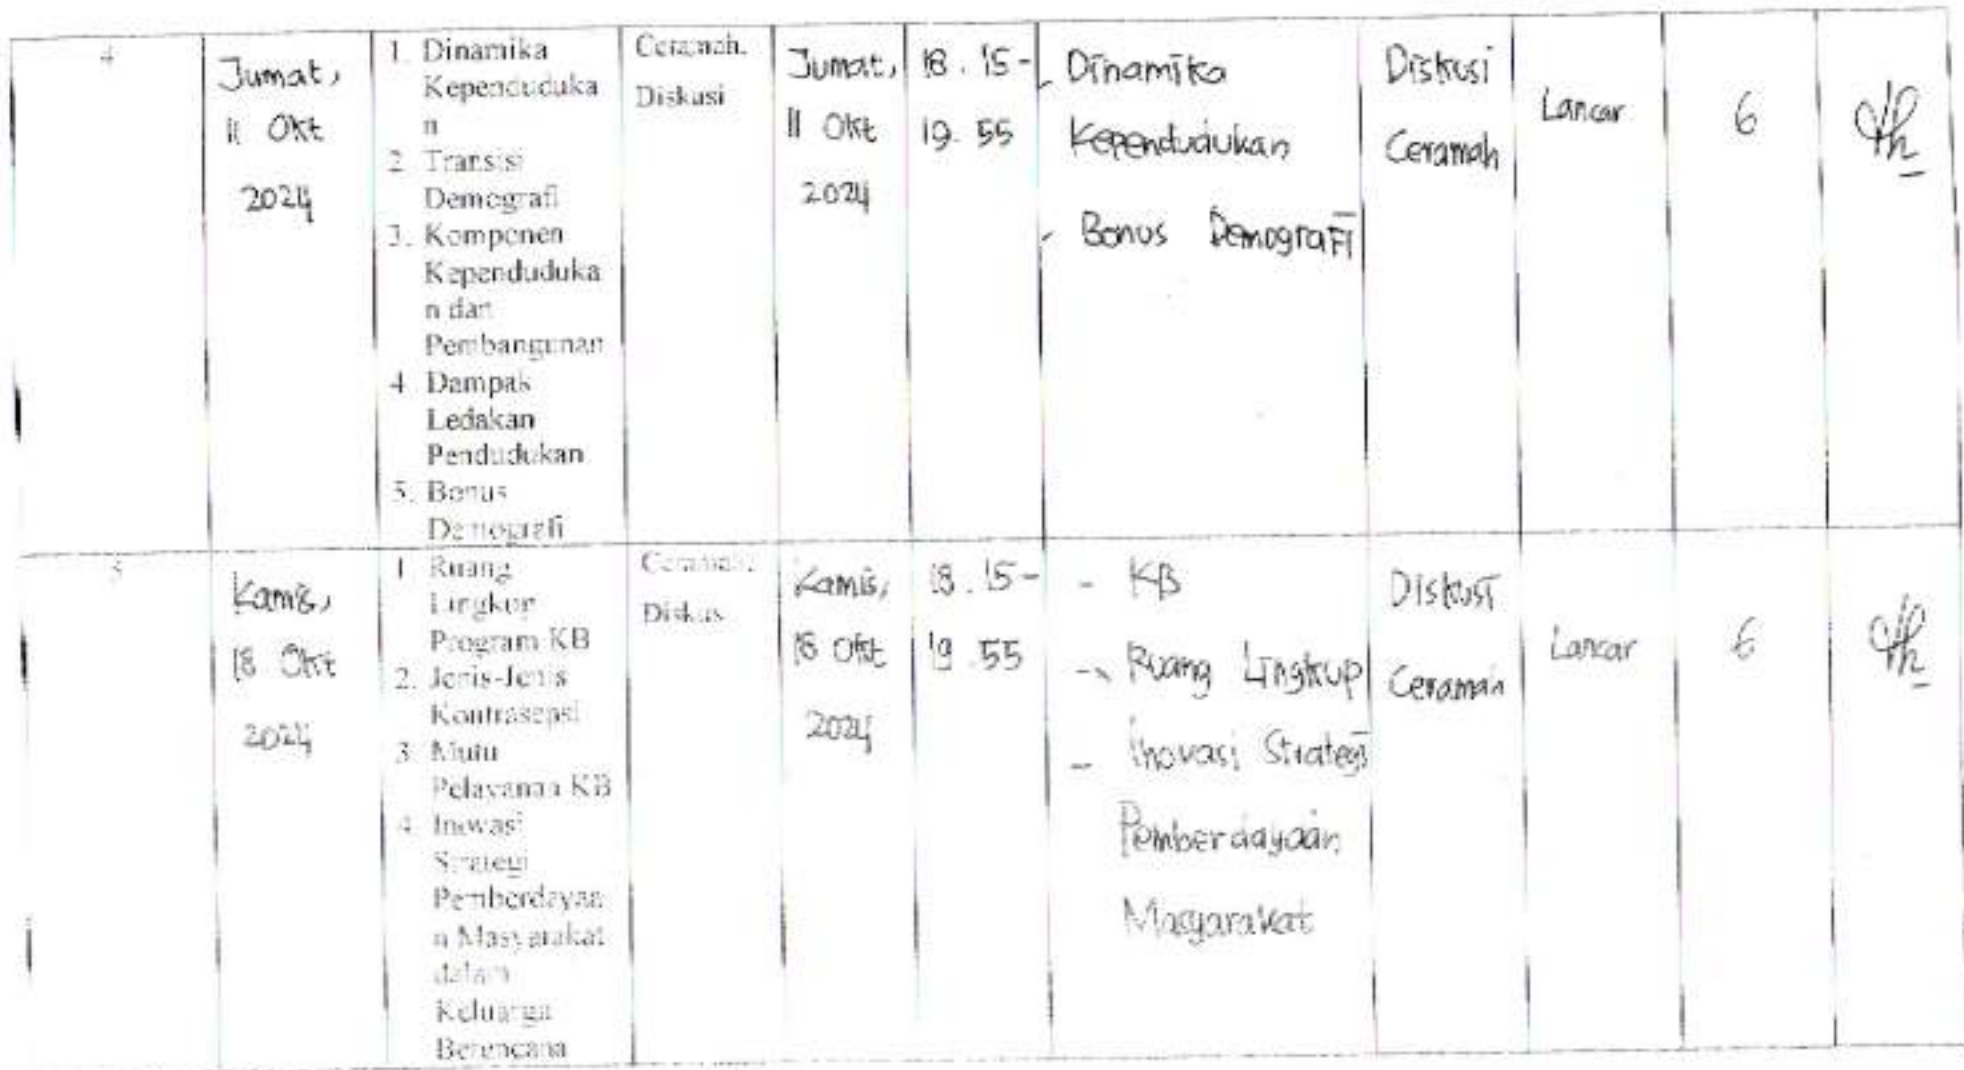 4
Jumat,
11 Okt
2024
1. Dinamika
Kependuduka
n
2. Transisi
Demografi
3. Komponen
Kependuduka
n dan
Pembangunan
4. Dampak
Ledakan
Pendudukan
5. Bonus
Demografi
Ceramah,
Diskusi
Jumat,
11 Okt
2024
18.15-
19.55
- Dinamika
Kependudukan
- Bonus Demografi
Diskusi
Ceramah
Lancar
6
5
Kamis,
18 Okt
2024
1. Ruang
Lingkup
Program KB
2. Jenis-Jenis
Kontrasepsi
3. Mutu
Pelayanan KB
4. Inovasi
Strategi
Pemberdayaa
n Masyarakat
dalam
Keluarga
Berencana
Ceramah,
Diskus
Kamis,
18 Okt
2024
18.15-
19.55
- KB
- Ruang Lingkup
- Inovasi Strategi
Pemberdayaan
Masyarakat
Diskusi
Ceramah
Lancar
6